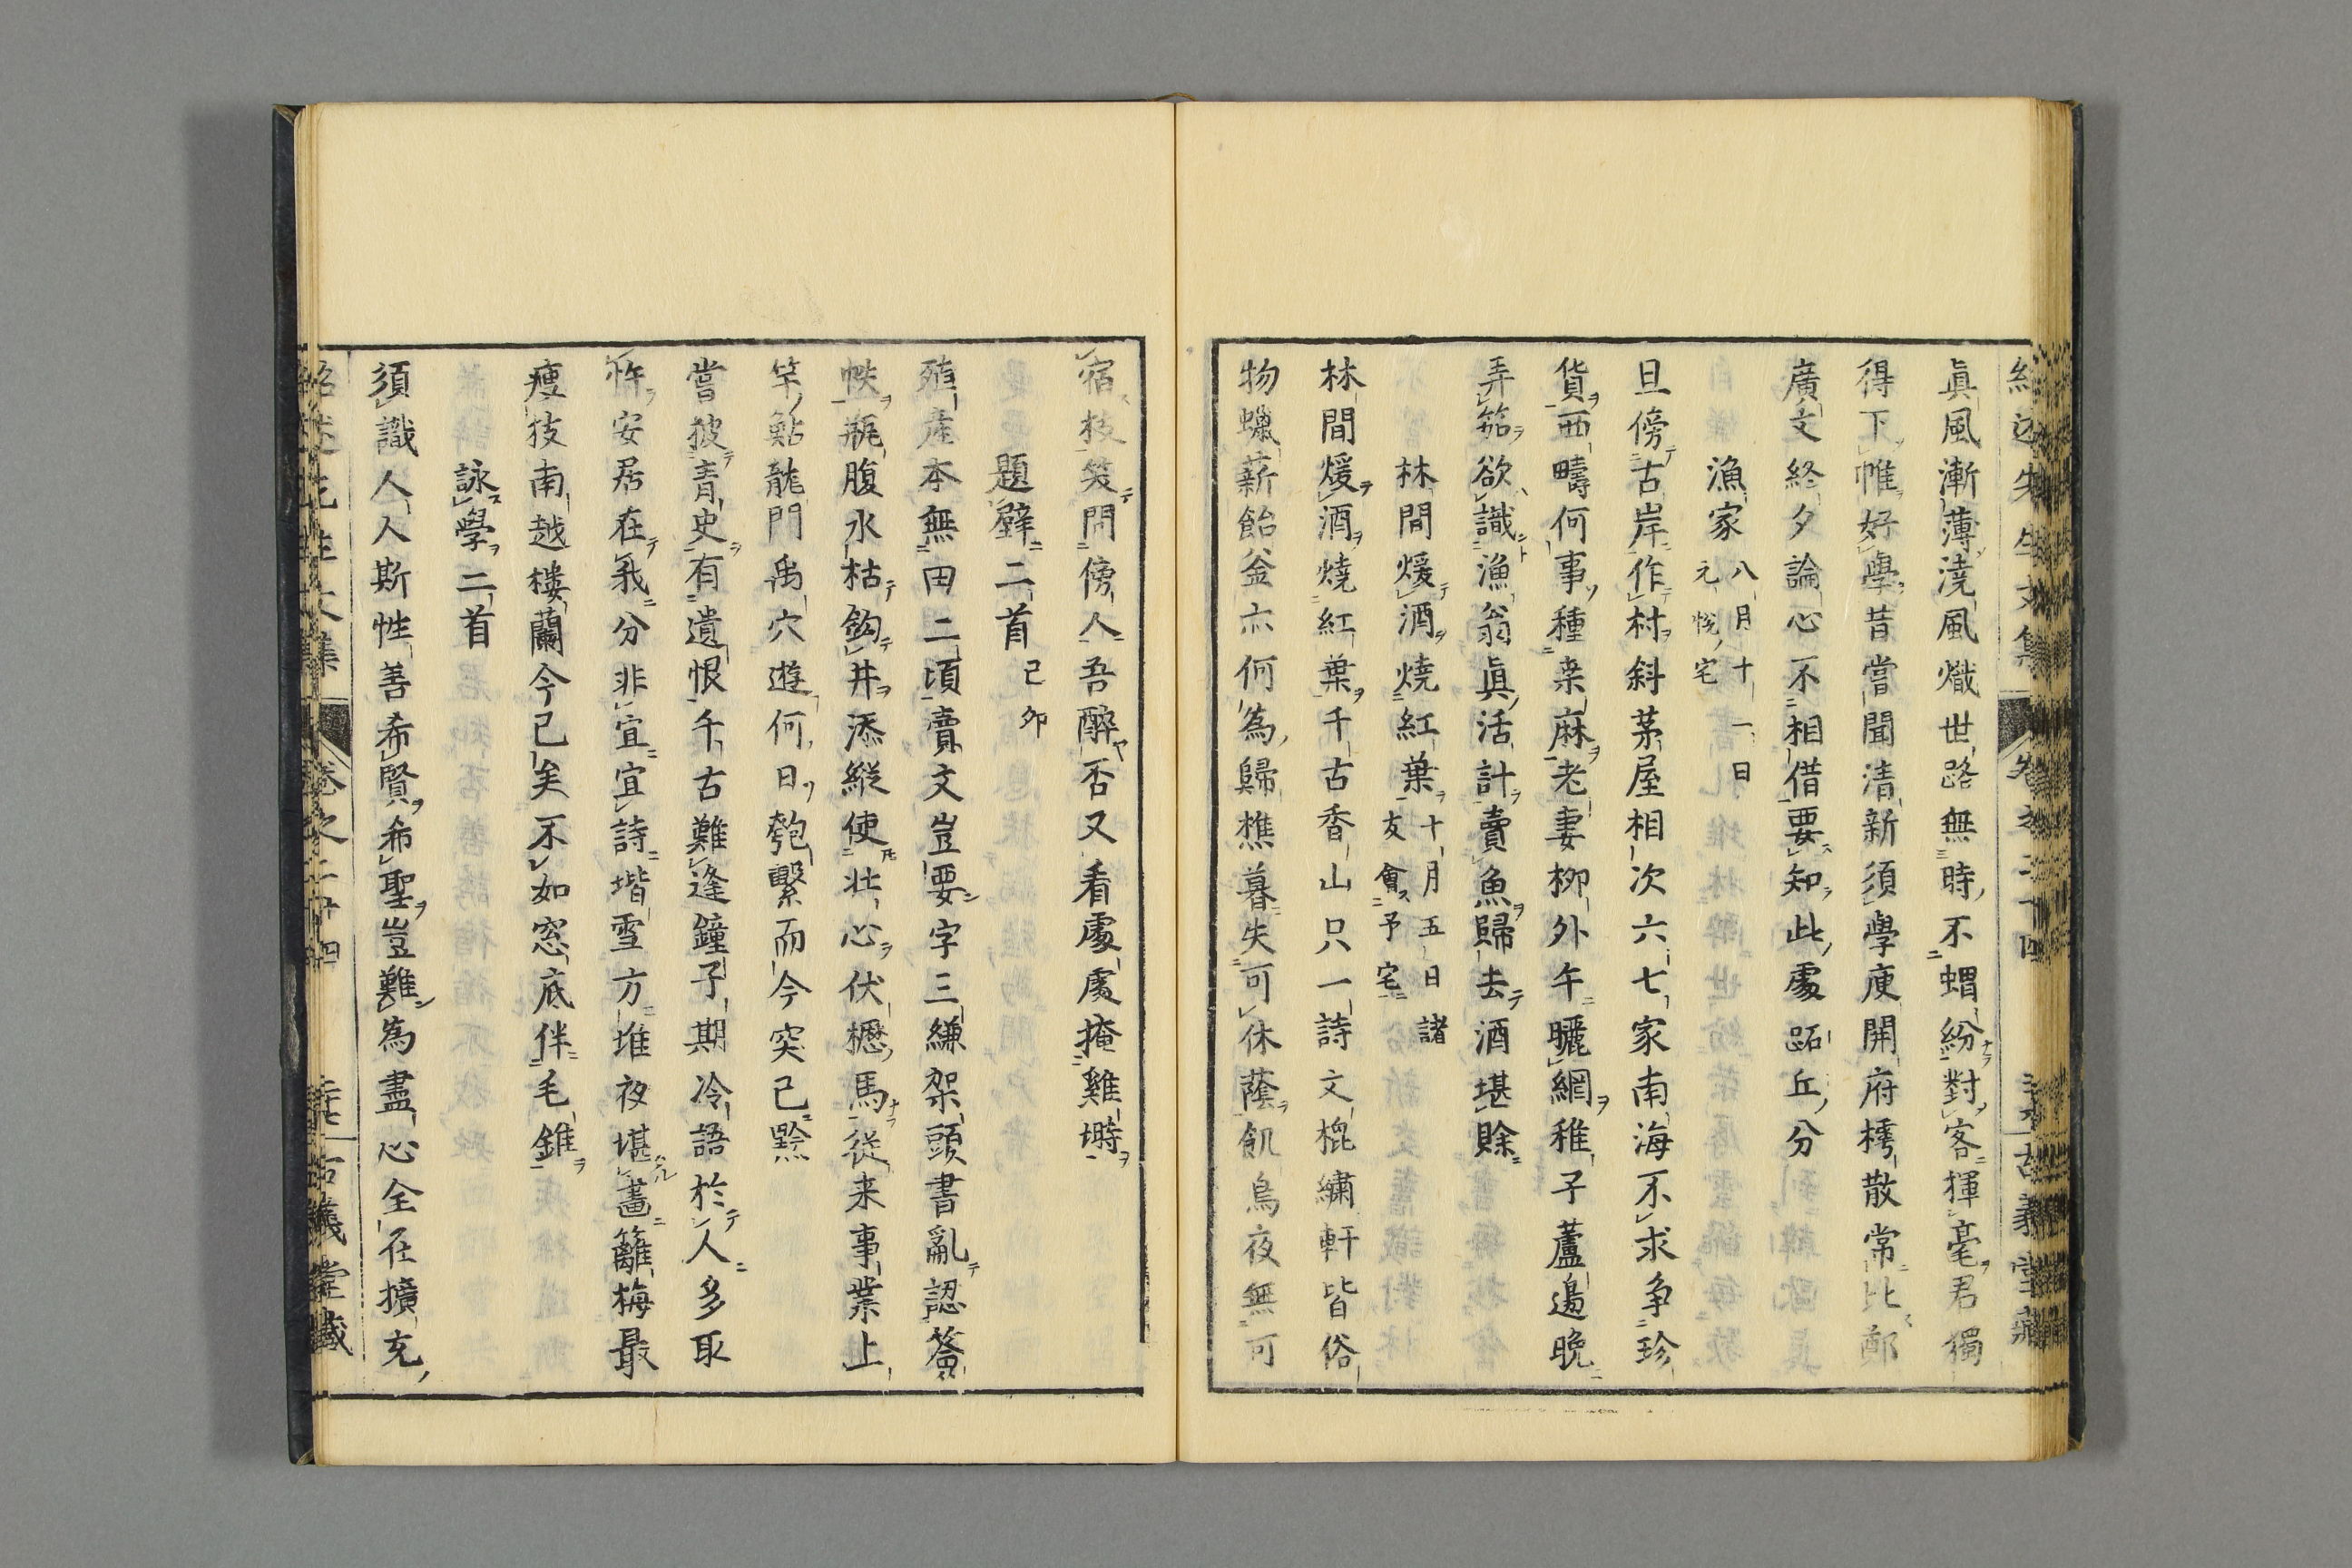 眞風漸薄澆風熾世路無時不蝟紛對客揮毫君獨
得下帷好學昔嘗聞清新須學庾開府樗散常比鄭
廣文終夕論心不相借要知此處跖丘分
漁家 八月十一日
元悅宅
旦傍古岸作村斜茅屋相次六七家南海不求争珍
貨西疇何事種桒麻老妻柳外午曬網稚子蘆邉晩
弄笳欲識漁翁眞活計賣魚歸去酒堪賖
林間煖酒燒紅葉 十月五日諸
友會予宅
林間煖酒燒紅葉千古香山只一詩文棍繡軒皆俗
物蠟薪飴釡亦何為歸樵暮失可休蔭飢烏夜無可
宿枝笑問傍人吾醉否又看處處掩雞塒
題壁二首 己卯
殖産本無田二頃賣文豈要字三縑架頭書亂認簽
帙瓶腹水枯鈎井添縱使壮心伏櫪馬従来事業上
竿鮎龍門禹穴遊何日匏繫而今突已黔
嘗披青史有遺恨千古難逢鐘子期冷語於人多取
忤安居在我分非宜宜詩堦雪方堆夜堪畵籬梅最
瘦枝南越樓蘭今已矣不如窓底伴毛錐
詠學二首
須識人人斯性善希賢希聖豈難為盡心全在擴充